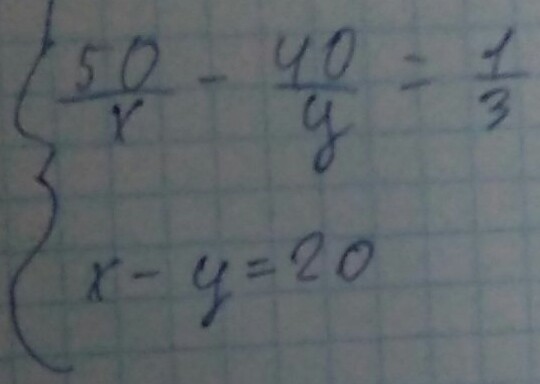 50/x - 40/y = 1/3
x - y = 20